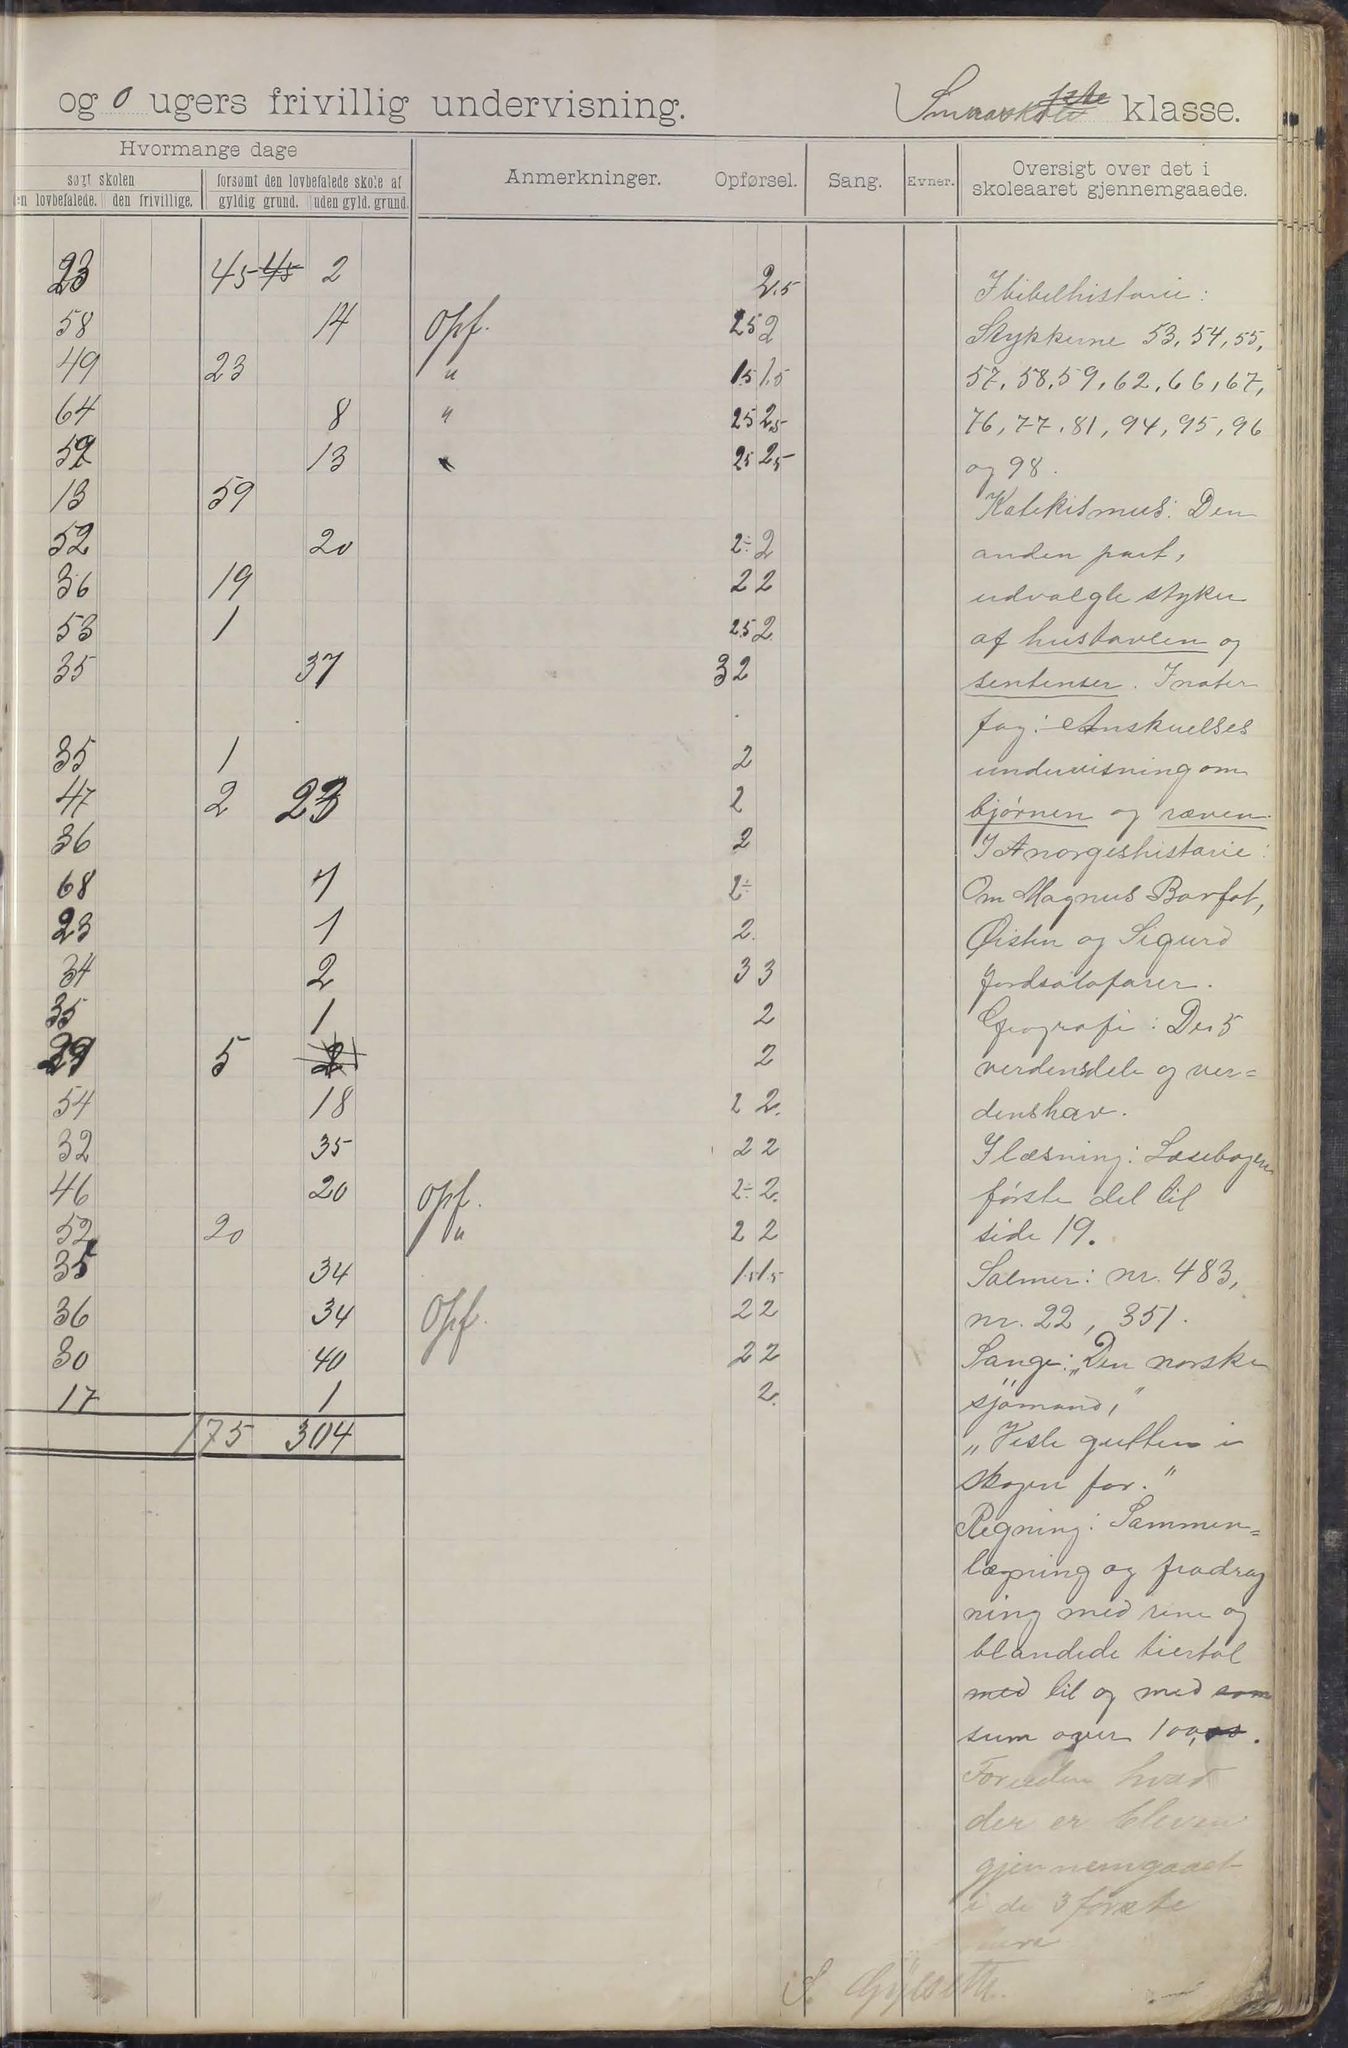 og 0 ugers frivillig undervisning. Smaaskole 1ste klasse.
Hvormange dage
søgt skolen forsømt den lovbefalede skole af Anmerkninger. Opførsel. Sang. Evner. Oversigt over det i
en lovbefalede. den frivillige. gyldig grund. uden gyld. grund. skoleaaret gjennemgaaede.
23 45 45 2 2.5
58 14 Opf. 25 2
49 23 " 1.5 1.5
64 8 " 25 2.5
59 13 " 25 2.5
13 59
52 20 2÷ 2
36 19 2 2
53 1 2.5 2
35 37 3 2
35 1 2
47 2 23 2
36 2
68 7 2÷
23 1 2.
34 2 3 3
35 1 2
29 5 2 2
54 18 2 2.
32 35 2 2
46 20 Opf. 2÷ 2.
52 20 " 2 2
35 34 1.5 1.5
36 34 Opf. 2 2
30 40 2 2
17 1 2.
175 304
I bibelhistorie:
Stykkerne 53, 54, 55,
57, 58, 59, 62, 66, 67,
76, 77, 81, 94, 95, 96
og 98.
Katekismus: Den
anden part,
udvalgte styker
af hustavlen og
sentenser. I natur
fag: Anskuelses
undervisning om
bjørnen og ræven.
I norgeshistorie:
Om Magnus Barfot,
Øisten og Sigurd
Jordsalafarer.
Geografi: De 5
verdensdele og ver=
denshav.
I læsning: Læsebogen
første del til
side 19.
Salmer: nr. 483,
nr. 22, 351.
Sange: „Den norske
sjømand,"
„Vesle gutten i
skogen for."
Regning: Sammen=
lægning og fradrag
ning med rene og
blandede tiertal
med til og med som
sum over 100,00.
Foruden hvad
der er bleven
gjennemgaaet
i de 3 første
S. Gylseth.